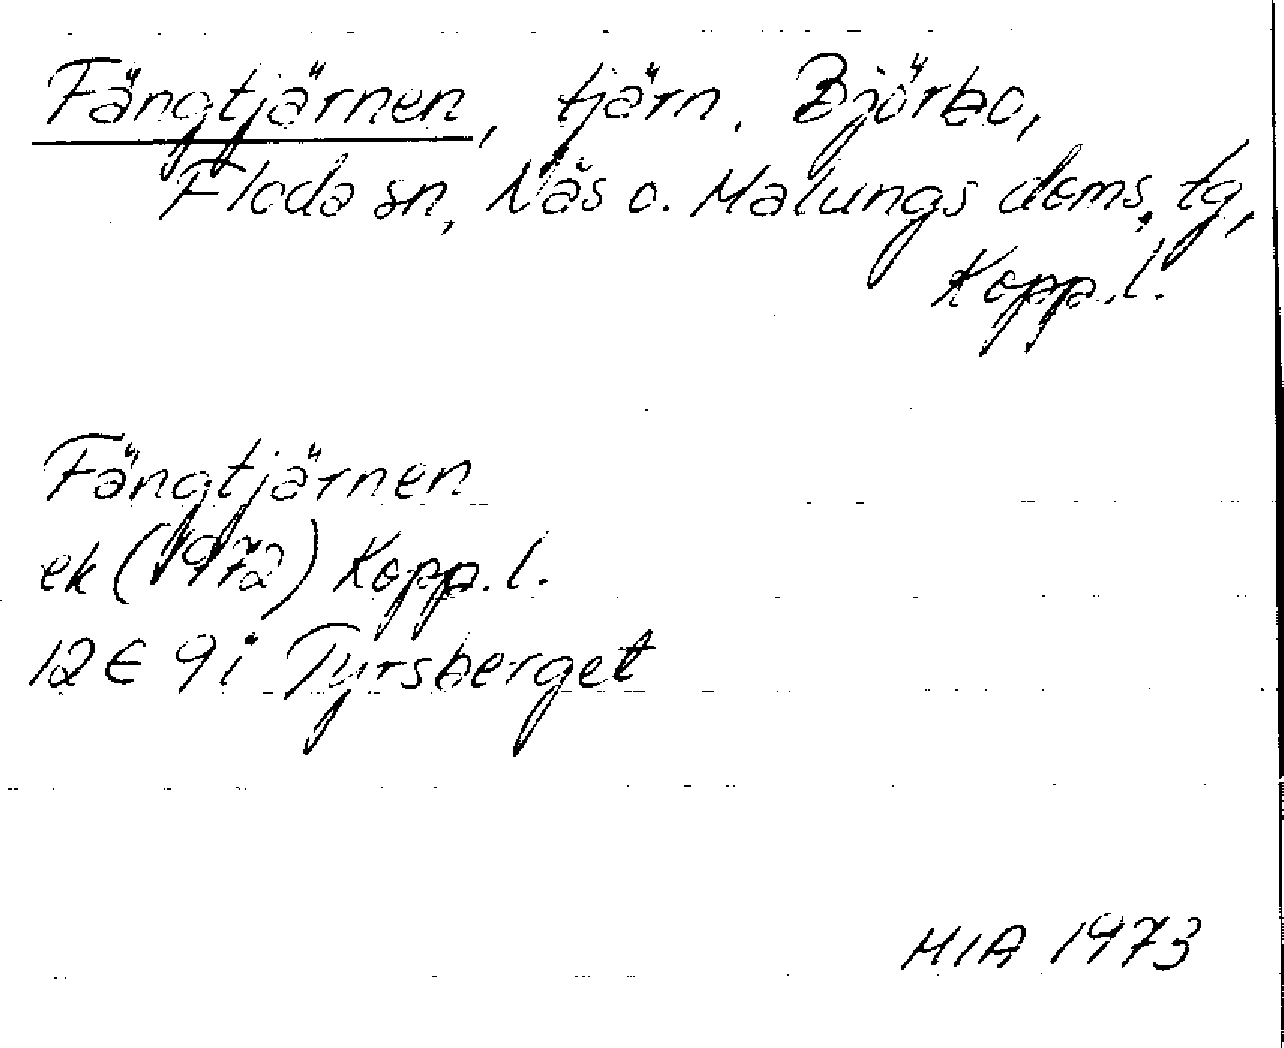 Fängtjärnen, tjärn. Björbo,
Floda sn, Näs o. Malungs doms. tg,
Kopp.l.
Fängtjärnen
ek (1972) Kopp.l.
12 E 9i Tyrsberget
MIA 1973